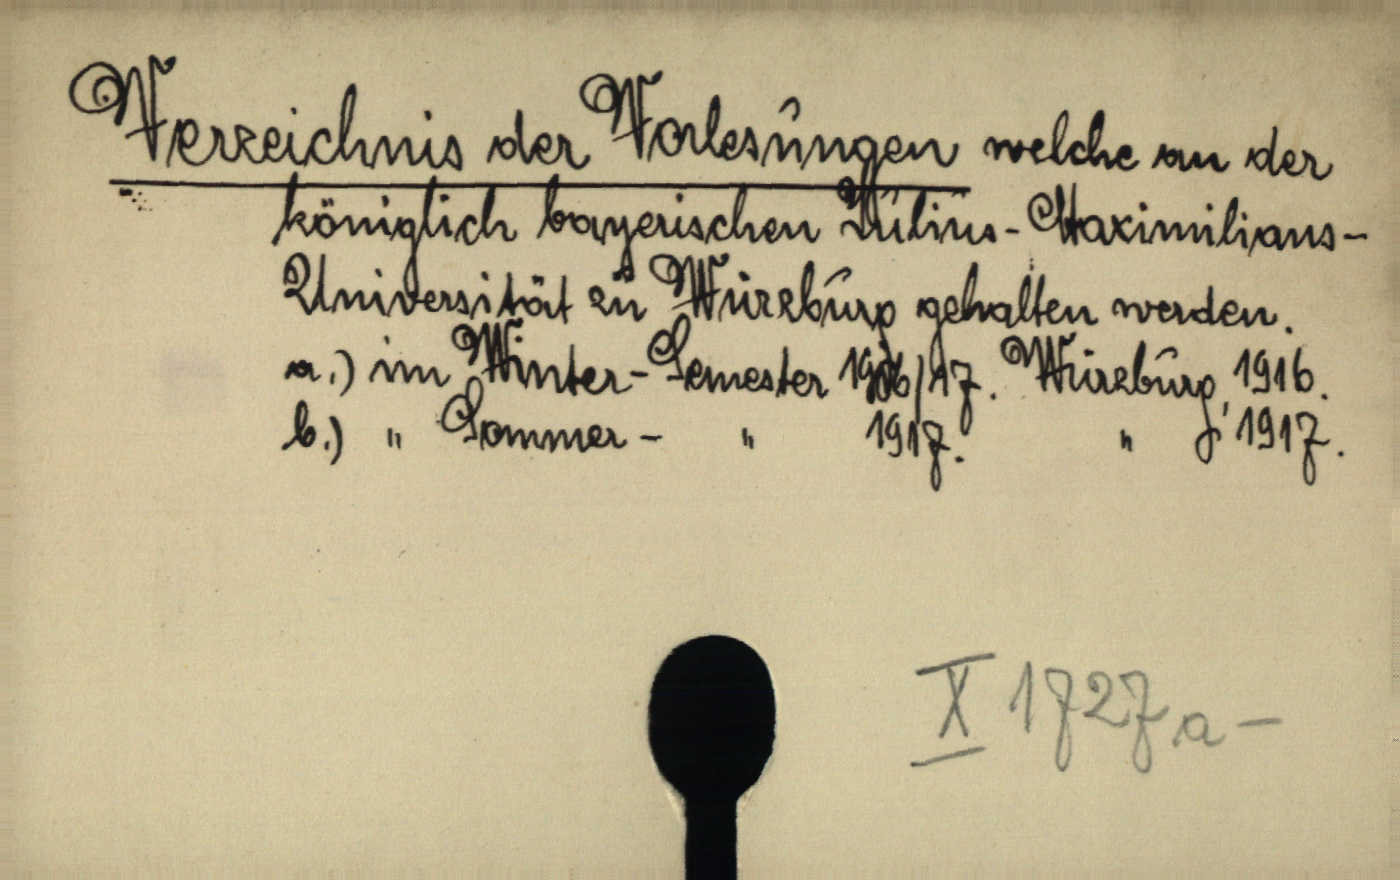 Verzeichnis der Vorlesungen welche an der
königlich bayerischen Julius-Maximilians-
Universität zu Würzburg gehalten werden.
a.) im Winter-Semester 1916/17. Würzburg, 1916.
b.) " Sommer- " 1917. " , 1917.
X 1727a-